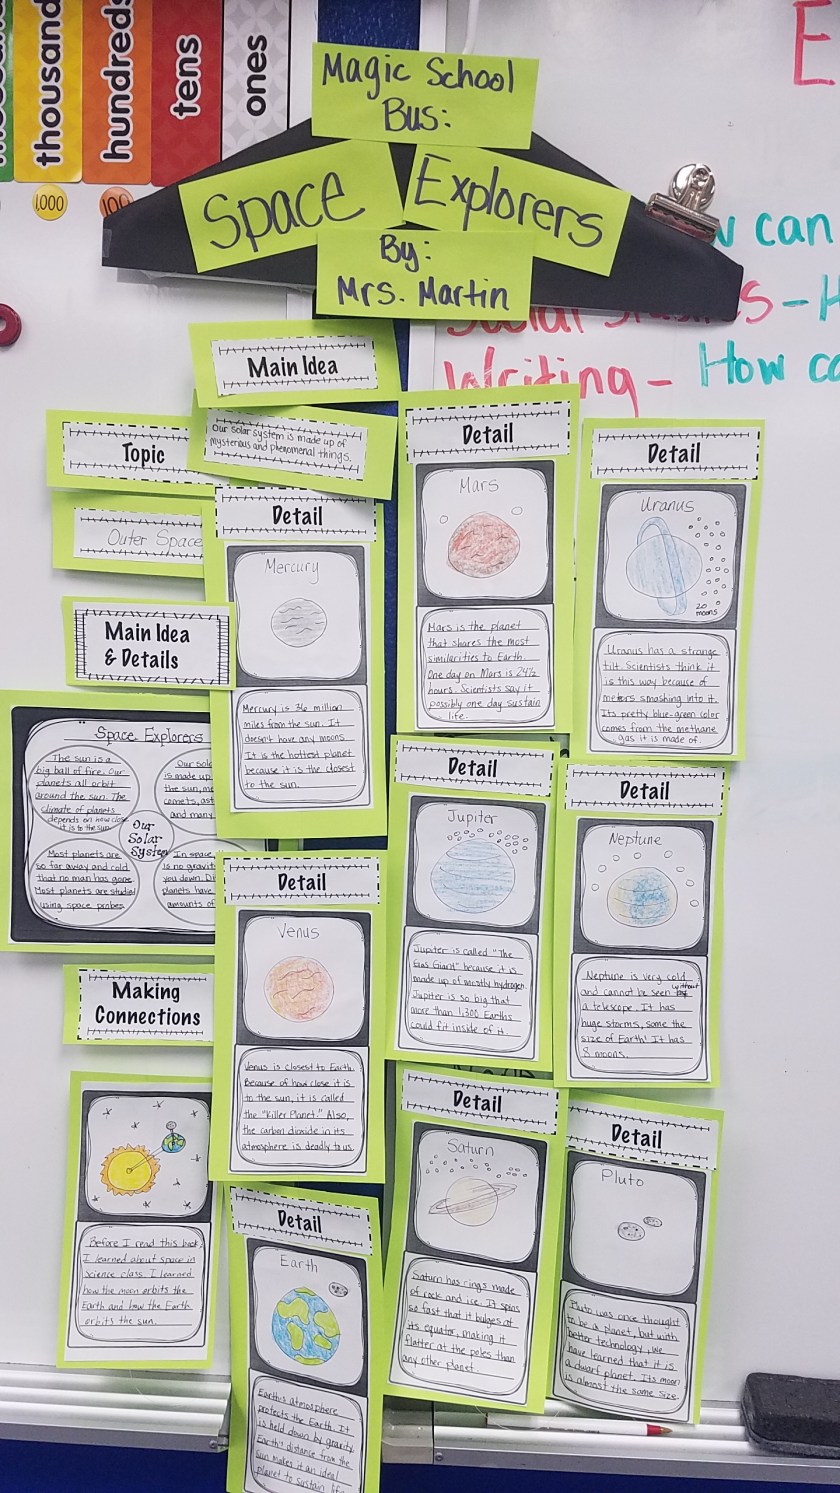 thousand
hundreds
tens
ones
1,000
100
E
Magic School
Bus:
Space
Explorers
By:
Mrs. Martin
can
Writing - How
Main Idea
Our solar system is made up of
mysterious and phenomenal things.
Topic
Outer Space
Main Idea
& Details
Space Explorers
The sun is a
big ball of fire. Our
planets all orbit
around the sun. The
climate of planets
depends on how close
it is to the sun.
Our
is made up
the sun,
comets,
and many
Our
Solar
System
Most planets are
so far away and cold
that no man has gone.
Most planets are studied
using space probes.
In space,
is no
you down.
planets have
amounts of
Making
Connections
Before I read this book,
I learned about space in
Science class. I learned
how the moon orbits the
Earth and how the Earth
orbits the sun.
Detail
Mercury
Mercury is 36 million
miles from the sun. It
doesn't have any moons.
It is the hottest planet
because it is the closest
to the sun.
Detail
Venus
Venus is closest to Earth.
Because of how close it is
to the sun, it is called
the "Killer Planet." Also,
the carbon dioxide in its
atmosphere is deadly to us.
Detail
Earth
Earth's atmosphere
protects the Earth. It
is held down by gravity.
Earth's distance from the
sun makes it an ideal
planet to sustain life.
Detail
Mars
Mars is the planet
that shares the most
similarities to Earth.
One day on Mars is 24½
hours. Scientists say it
possibly one day sustain
life.
Detail
Jupiter
Jupiter is called "The
Gas Giant" because it is
made up of mostly hydrogen.
Jupiter is so big that
more than 1,300 Earths
could fit inside of it.
Detail
Saturn
Saturn has rings made
of rock and ice. It spins
so fast that it bulges at
its equator, making it
flatter at the poles than
any other planet.
Detail
Uranus
20
moons
Uranus has a strange
tilt. Scientists think it
is this way because of
meteors smashing into it.
Its pretty blue-green color
comes from the methane
gas it is made of.
Detail
Neptune
Neptune is very cold
and cannot be seen without
a telescope. It has
huge storms, some the
size of Earth! It has
8 moons.
Detail
Pluto
Pluto was once thought
to be a planet, but with
better technology, we
have learned that it is
a dwarf planet. Its moon
is almost the same size.